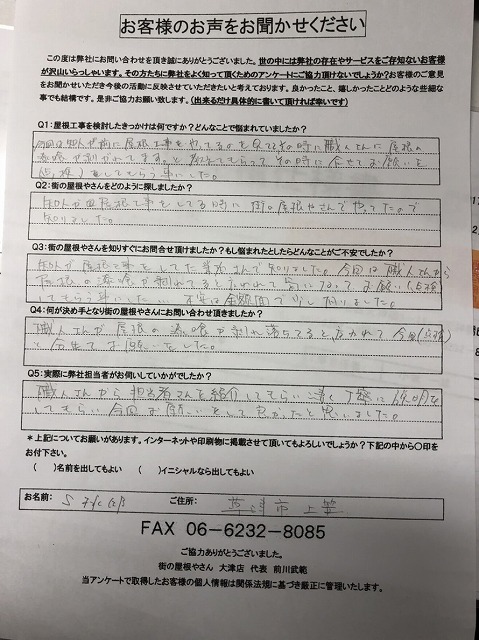 お客様のお声をお聞かせください
この度は弊社にお問い合わせを頂き誠にありがとうございました。世の中には弊社の存在やサービスをご存知ないお客様
が沢山いらっしゃいます。その方たちに弊社をよく知って頂くためのアンケートにご協力頂けないでしょうか？お客様のご意見
をお聞かせいただき今後の活動に反映させていただきたいと考えております。良かったこと、嬉しかったことどのような些細な
事でも結構です。是非ご協力お願い致します。（出来るだけ具体的に書いて頂ければ幸いです）
Q1：屋根工事を検討したきっかけは何ですか？どんなことで悩まれていましたか？
今回は知人が前に屋根工事をやってるのを見てその時に職人さんに屋根の
漆喰が剥がれてますると教えてもらってその時に合せてお願いを
(点検)をしてもらう事にした。
Q2：街の屋根やさんをどのように探しましたか？
知人が屋根工事をしてる時に街の屋根やさんでやってたので
知りました。
Q3：街の屋根やさんを知りすぐにお問合せ頂けましたか？もし悩まれたとしたらどんなことがご不安でしたか？
知人が屋根工事をしてた業者さんで知りました。今回は職人さんから
屋根の漆喰が剥れてると言われて お願い(点検
してもらう事にした 不安は金額面で少し有りました。
Q4：何が決め手となり街の屋根やさんにお問い合わせ頂きましたか？
職人さんが屋根の漆喰が剥れ落ちてると言われて今回(点検)
と合せてお願いをした。
Q5：実際に弊社担当者がお伺いしていかがでしたか？
職人さんから担当者さんを紹介してもらい凄く丁寧に説明を
してもらい今回お願いをして良かったと思いました。
＊上記についてお願いがあります。インターネットや印刷物に掲載させて頂いてもよろしいでしょうか？下記の中から○印を
お付下さい。
（　　）名前を出してもよい　（　　）イニシャルなら出してもよい
お名前： S ご住所： 草津市上笠
FAX 06-6232-8085
ご協力ありがとうございました。
街の屋根やさん 大津店 代表 前川武範
当アンケートで取得したお客様の個人情報は関係法規に基づき厳正に管理いたします。